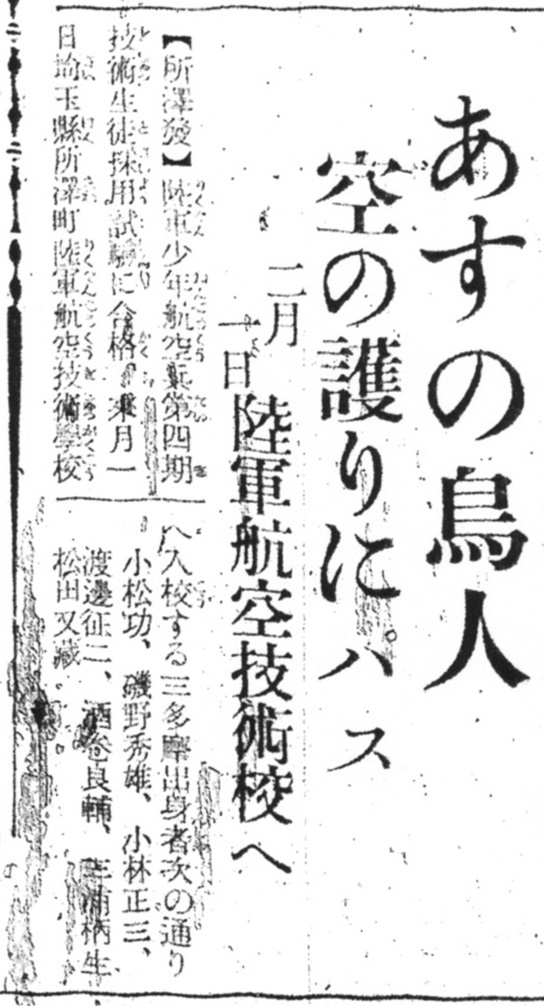 あすの鳥人
空の護りにパス
二月一日陸軍航空技術校へ
【所澤發】陸軍少年航空兵第四期
技術生徒採用試驗に合格、來月一
日埼玉縣所澤町陸軍航空技術學校
へ入校する三多摩出身者次の通り
小松功、磯野秀雄、小林正三、
渡邊征二、酒巻良輔、三浦柄生
松田又藏